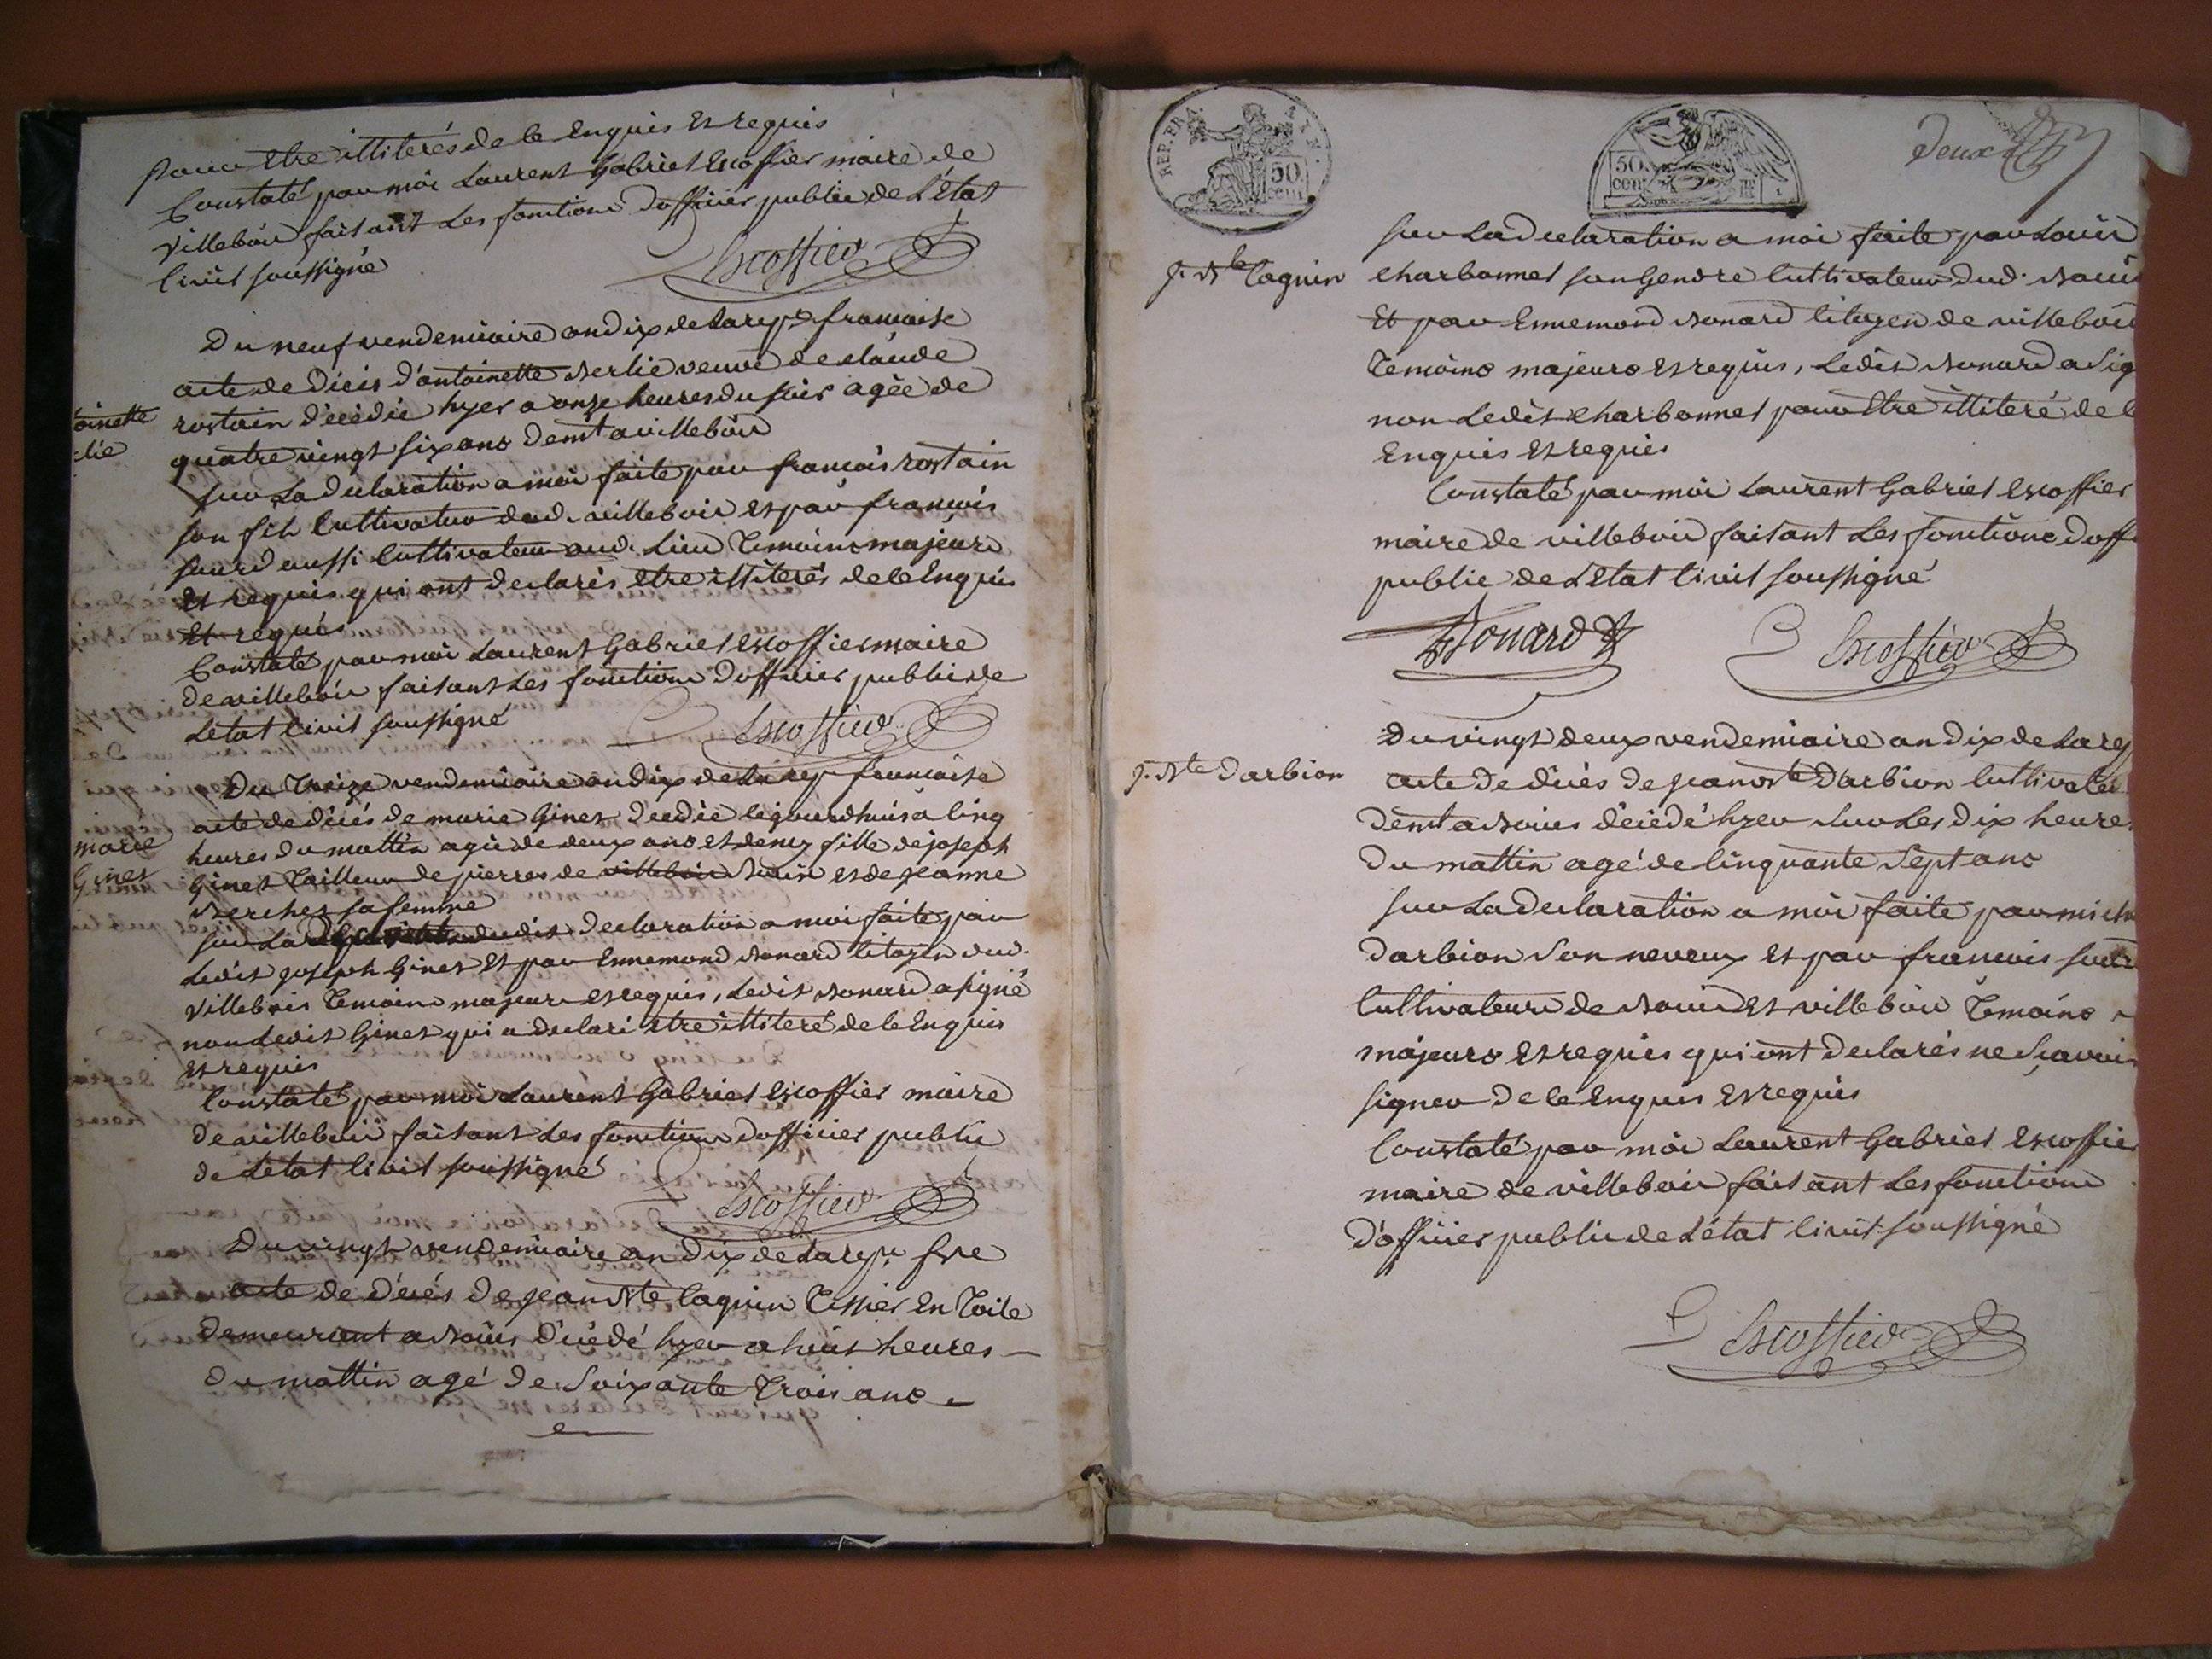 pour Etre illiterés de ce Enquis Et requis
Constaté par moi Laurent Gabriel Escoffier maire de
Villebois faisant Les fonctions d'officier public de L'Etat
Civil soussigné
Escoffier
Du neuf vendemiaire an dix de La rep.e francaise
acte de décés d'antoinette Merlie veuve de claude
rostain décédée hyer a onze heures du soir agée de
oinette
lie
quatre vingt six ans demt a villebois
sur La declaration a moi faite par francois rostain
son fils Cultivateur dud. villebois Et par francois
Suard aussi Cultivateur aud. Lieu Temoins majeurs
Et requis qui ont declarés Etre illiterés de ce Enquis
Et requis
Constaté par moi Laurent Gabriel Escoffier maire
de villebois faisant Les fonctions d'officier public de
L'etat Civil soussigné
Escoffier
Du Treize vendemiaire an dix de La rep.e francaise
acte de décés de marie Ginet décédée Cejourdhui a Cinq
marie
Ginet
heures du mattin agée de deux ans et demy fille de joseph
Ginet Tailleur de pierres de villebois Bouis et de jeanne
Berchet sa femme
sur La declaration a moi faite par
Ledit joseph Ginet Et par Ennemond Bonard Citoyen dud.
Villebois Temoins majeurs et requis, Ledit Bonard a signé
non Ledit Ginet qui a declaré Etre illiteré de ce Enquis
Et requis
Constaté par moi Laurent Gabriel Escoffier maire
de villebois faisant Les fonctions d'officier public
de L'etat Civil soussigné
Escoffier
Du vingt vendemiaire an dix de La rep.e fse
acte de décés de jean Bte Coquin Tissier En Toile
demeurant a Bouis décédé hyer a huit heures
du mattin agé de Soixante Trois ans
REP. FRA.
50
cent
50
cen
Deux
sur La declaration a moi faite par Louis
J. Bte Coquin
charbonnet son Gendre Cultivateur dud. Bouis
Et par Ennemond Bonard Citoyen de villebois
Temoins majeurs et requis, Ledit Bonard a Sig
non Ledit charbonnet pour Etre illiteré de c
Enquis Et requis
Constaté par moi Laurent Gabriel Escoffier
maire de villebois faisant Les fonctions d'off
public de L'Etat Civil soussigné
Bonard
Escoffier
Du vingt deux vendemiaire an dix de La rep
J. Bte Darbion
acte de décés de jean Bte Darbion Cultivateu
demt a Bouis décédé hyer sur Les dix heures
du mattin agé de Cinquante Sept ans
sur La declaration a moi faite par mich
Darbion Son neveux Et par francois Suar
Cultivateurs de Bouis Et villebois Temoins
majeurs Et requis qui ont declarés ne Scavoir
signer de ce Enquis Et requis
Constaté par moi Laurent Gabriel Escoffier
maire de villebois faisant Les fonctions
d'officier public de L'état Civil soussigné
Escoffier